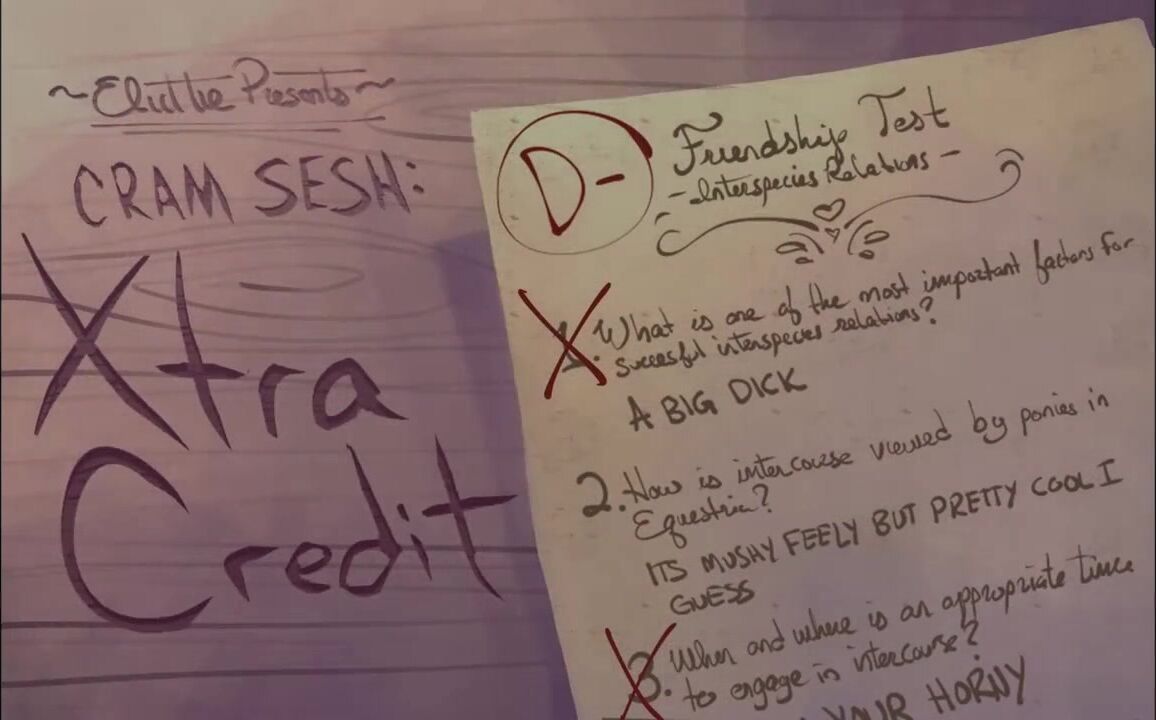 Presents~
CRAM SESH:
Xtra
Credit
D-
Friendship Test
-Interspecies Relations-
1. What is one of the most important factors for
succesful interspecies relations?
A BIG DICK
2. How is intercourse viewed by ponies in
Equestria?
ITS MUSHY FEELY BUT PRETTY COOL I
GUESS
3. When and where is an appropriate time
to engage in intercourse?
YOUR HORNY